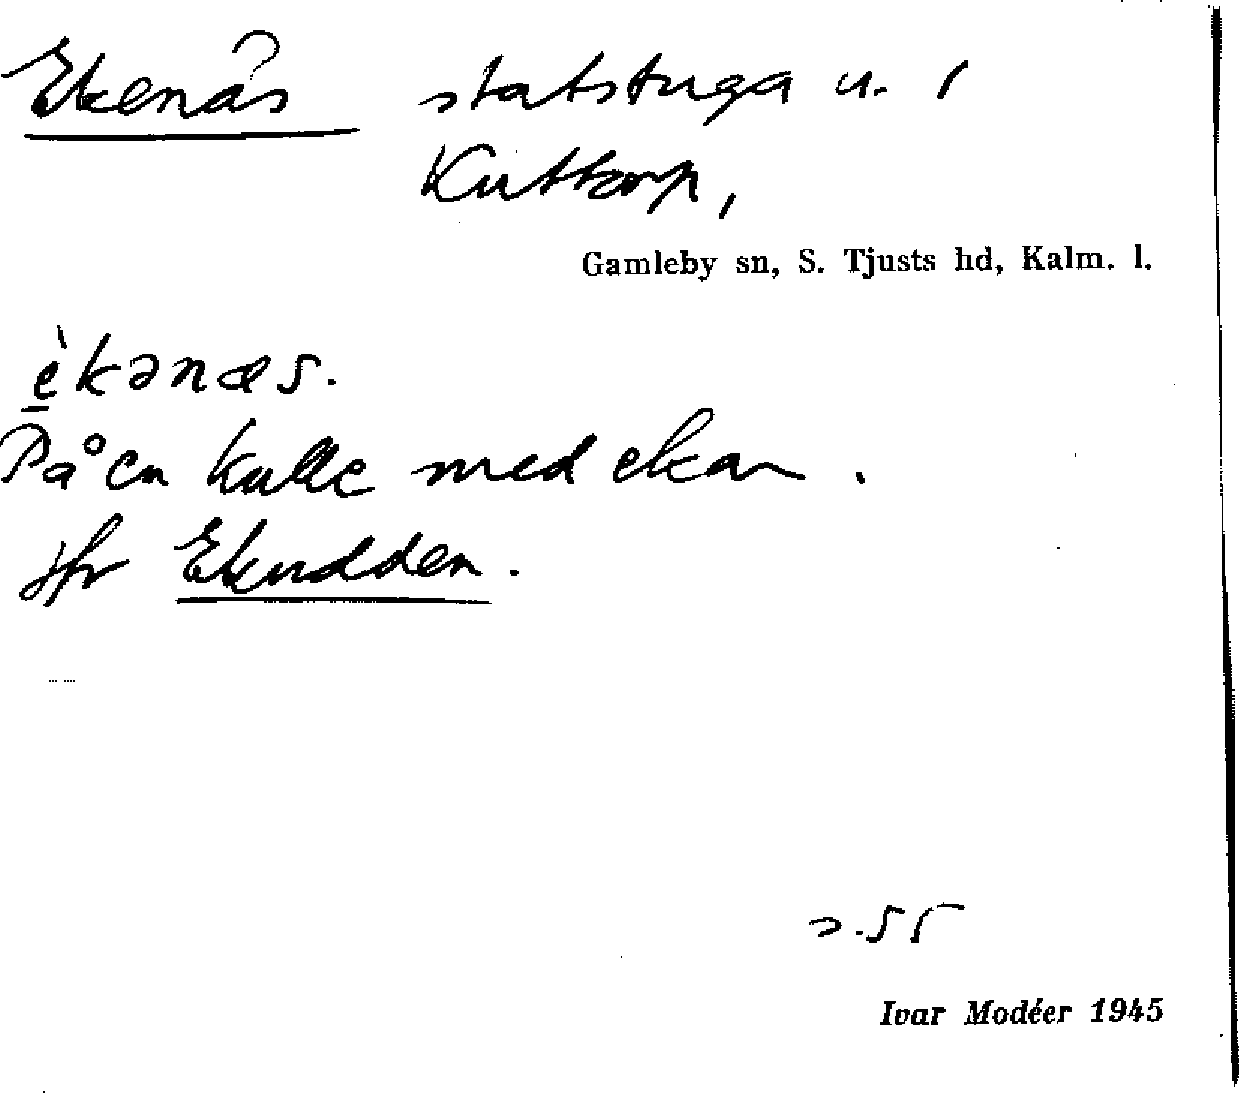 Ekenäs statstuga u. /
Kuttorp,
Gamleby sn, S. Tjusts hd, Kalm. l.
èkənæs.
På en kulle med ekar.
Jfr Ekudden.
2.55
Ivar Modéer 1945